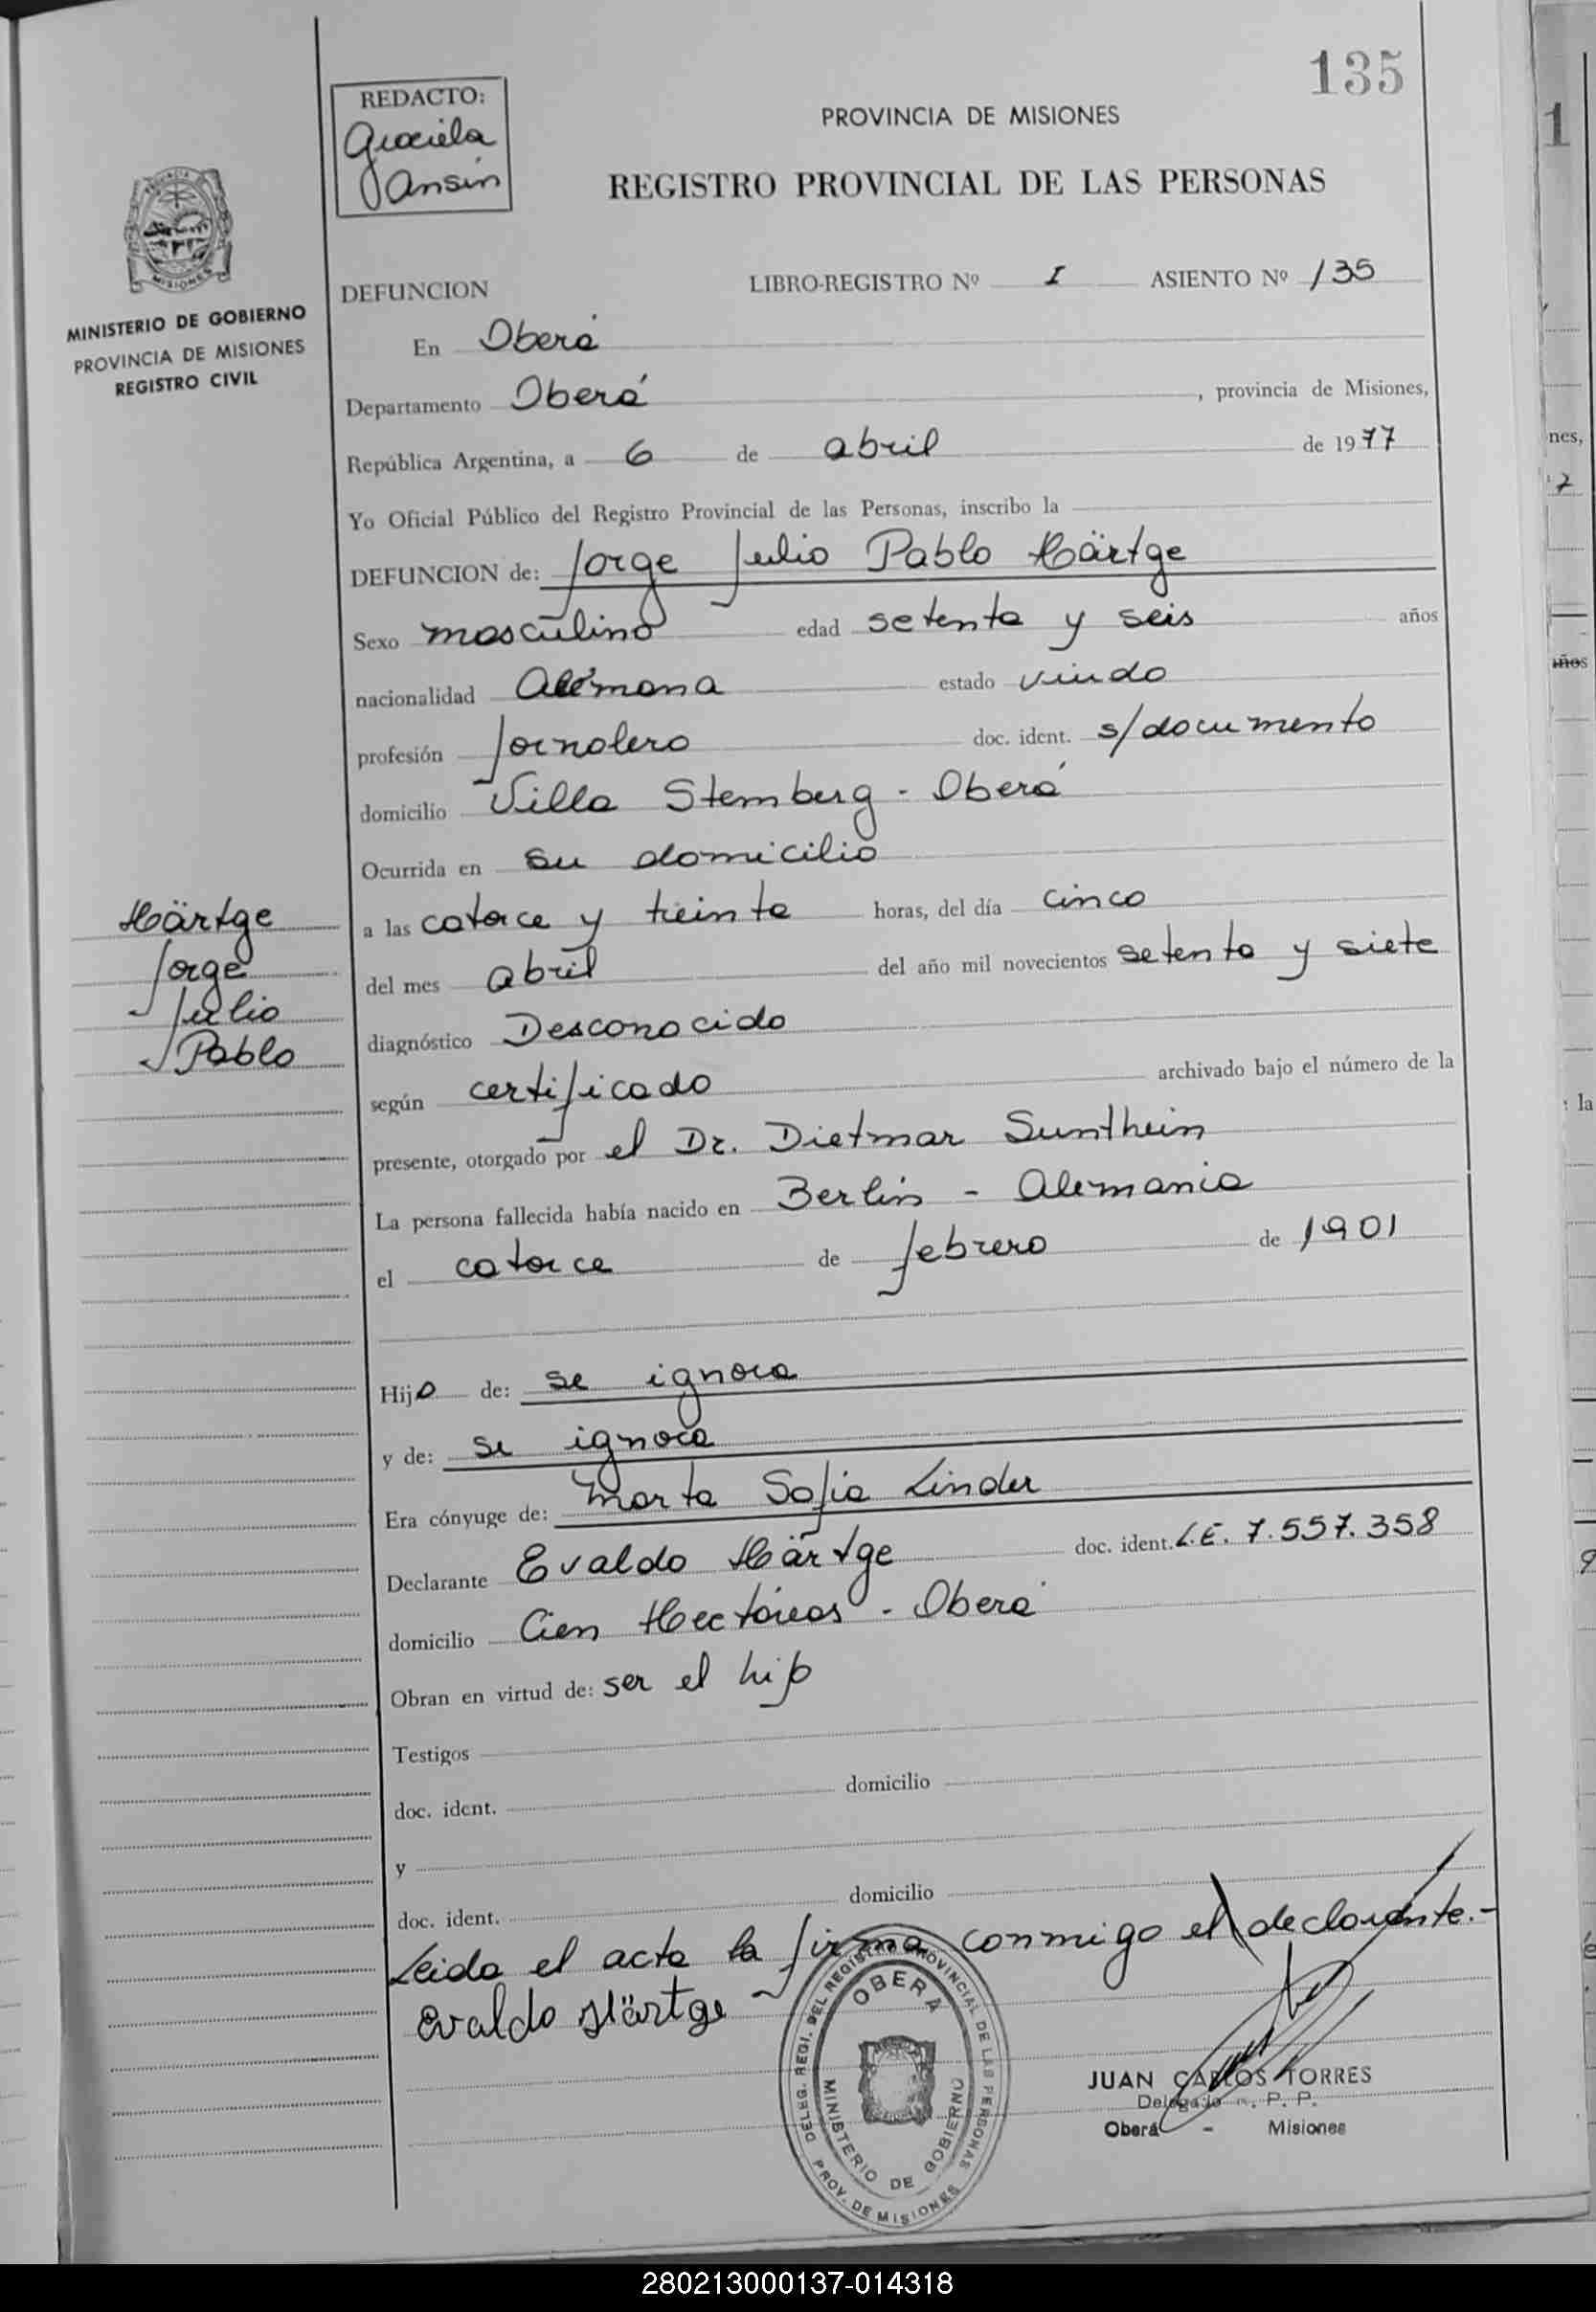 135
REDACTO:
Graciela
Jansin
PROVINCIA DE MISIONES
REGISTRO PROVINCIAL DE LAS PERSONAS
PROVINCIA
MISIONES
MINISTERIO DE GOBIERNO
PROVINCIA DE MISIONES
REGISTRO CIVIL
DEFUNCION LIBRO-REGISTRO Nº I ASIENTO Nº 135
En Oberá
Departamento Oberá, provincia de Misiones,
República Argentina, a 6 de abril de 1977
Yo Oficial Público del Registro Provincial de las Personas, inscribo la
DEFUNCION de: Jorge Julio Pablo Härtge
Sexo masculino edad setenta y seis años
nacionalidad Alemana estado viudo
profesión Jornalero doc. ident. s/documento
domicilio Villa Stemberg - Oberá
Ocurrida en su domicilio
a las catorce y treinta horas, del día cinco
del mes abril del año mil novecientos setenta y siete
diagnóstico Desconocido
según certificado archivado bajo el número de la
presente, otorgado por el Dr. Dietmar Sunthein
La persona fallecida había nacido en Berlin - Alemania
el catorce de febrero de 1901
Härtge
Jorge
Julio
Pablo
Hijo de: se ignora
y de: se ignora
Era cónyuge de: Marta Sofia Linder
Declarante Evaldo Härtge doc. ident. L.E. 7.557.358
domicilio Cien Hectáreas - Oberá
Obran en virtud de: ser el hijo
Testigos
doc. ident. domicilio
y
doc. ident. domicilio
Leida el acta la firma conmigo el declarante.-
Evaldo Härtge
DELEG. REGI. DEL REGISTRO PROVINCIAL DE LAS PERSONAS
OBERA
MINISTERIO DE GOBIERNO
PROV. DE MISIONES
JUAN CARLOS TORRES
Delegado R. P. P.
Oberá - Misiones
1
nes,
7
años
la
9
280213000137-014318